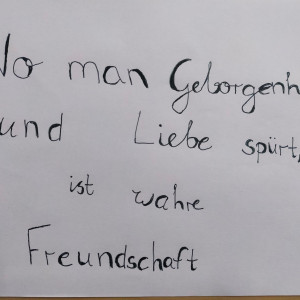 Wo man Geborgenh
und Liebe spürt,
ist wahre
Freundschaft